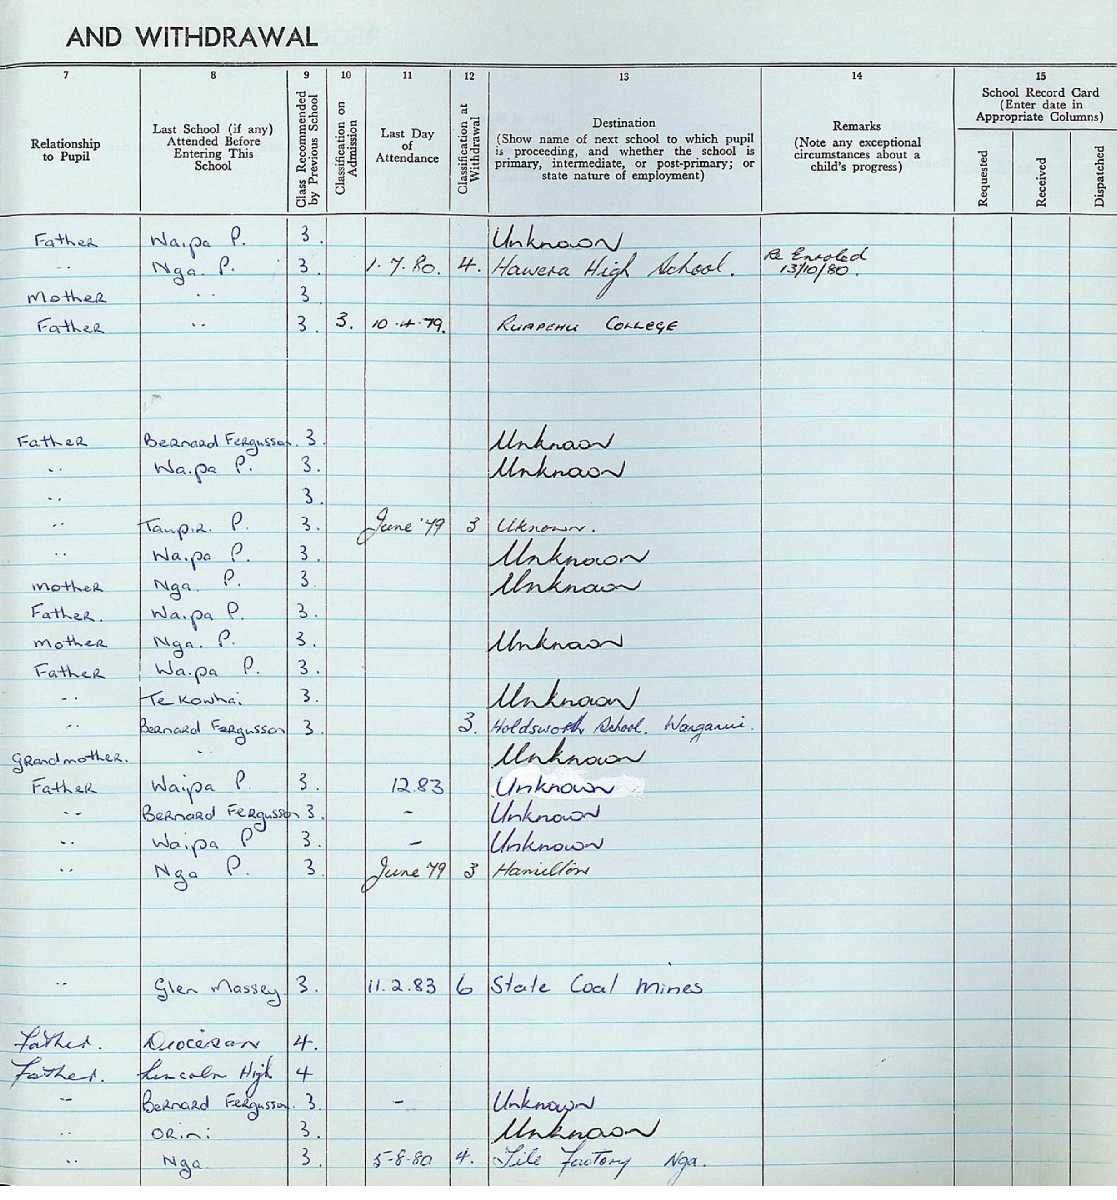 AND WITHDRAWAL
7 8 9 10 11 12 13 14 15
Relationship to Pupil
Last School (if any) Attended Before Entering This School
Class Recommended by Previous School
Classification on Admission
Last Day of Attendance
Classification at Withdrawal
Destination
(Show name of next school to which pupil is proceeding, and whether the school is primary, intermediate, or post-primary; or state nature of employment)
Remarks
(Note any exceptional circumstances about a child's progress)
School Record Card
(Enter date in Appropriate Columns)
Requested
Received
Dispatched
Father Waipa P. 3. Unknown
" Nga. P. 3. 1.7.80. 4. Hawera High School. Re Enroled 13/10/80.
Mother " 3
Father " 3. 3. 10.4.79. RUAPEHU COLLEGE
Father Bernard Fergusson. 3. Unknown
" Waipa P. 3. Unknown
" 3.
" Taupiri P. 3. June '79 3 Uknown.
" Waipa P. 3. Unknown
mother Nga. P. 3 Unknown
Father. Waipa P. 3.
mother Nga. P. 3. Unknown
Father Waipa P. 3.
" Te Kowhai 3. Unknown
" Bernard Fergusson 3. 3. Holdsworth School. Wanganui.
Grandmother. " Unknown
Father Waipa P. 3. 12.83 Unknown
" Bernard Fergusson 3. - Unknown
" Waipa P 3. - Unknown
" Nga P. 3. June '79 3 Hamilton
" Glen Massey. 3. 11.2.83 6 State Coal Mines
Father. Diocesan 4.
Father. Lincoln High 4
" Bernard Fergusson. 3. - Unknown
" Orini 3. Unknown
" Nga 3. 5-8-80 4. Tile Factory Nga.